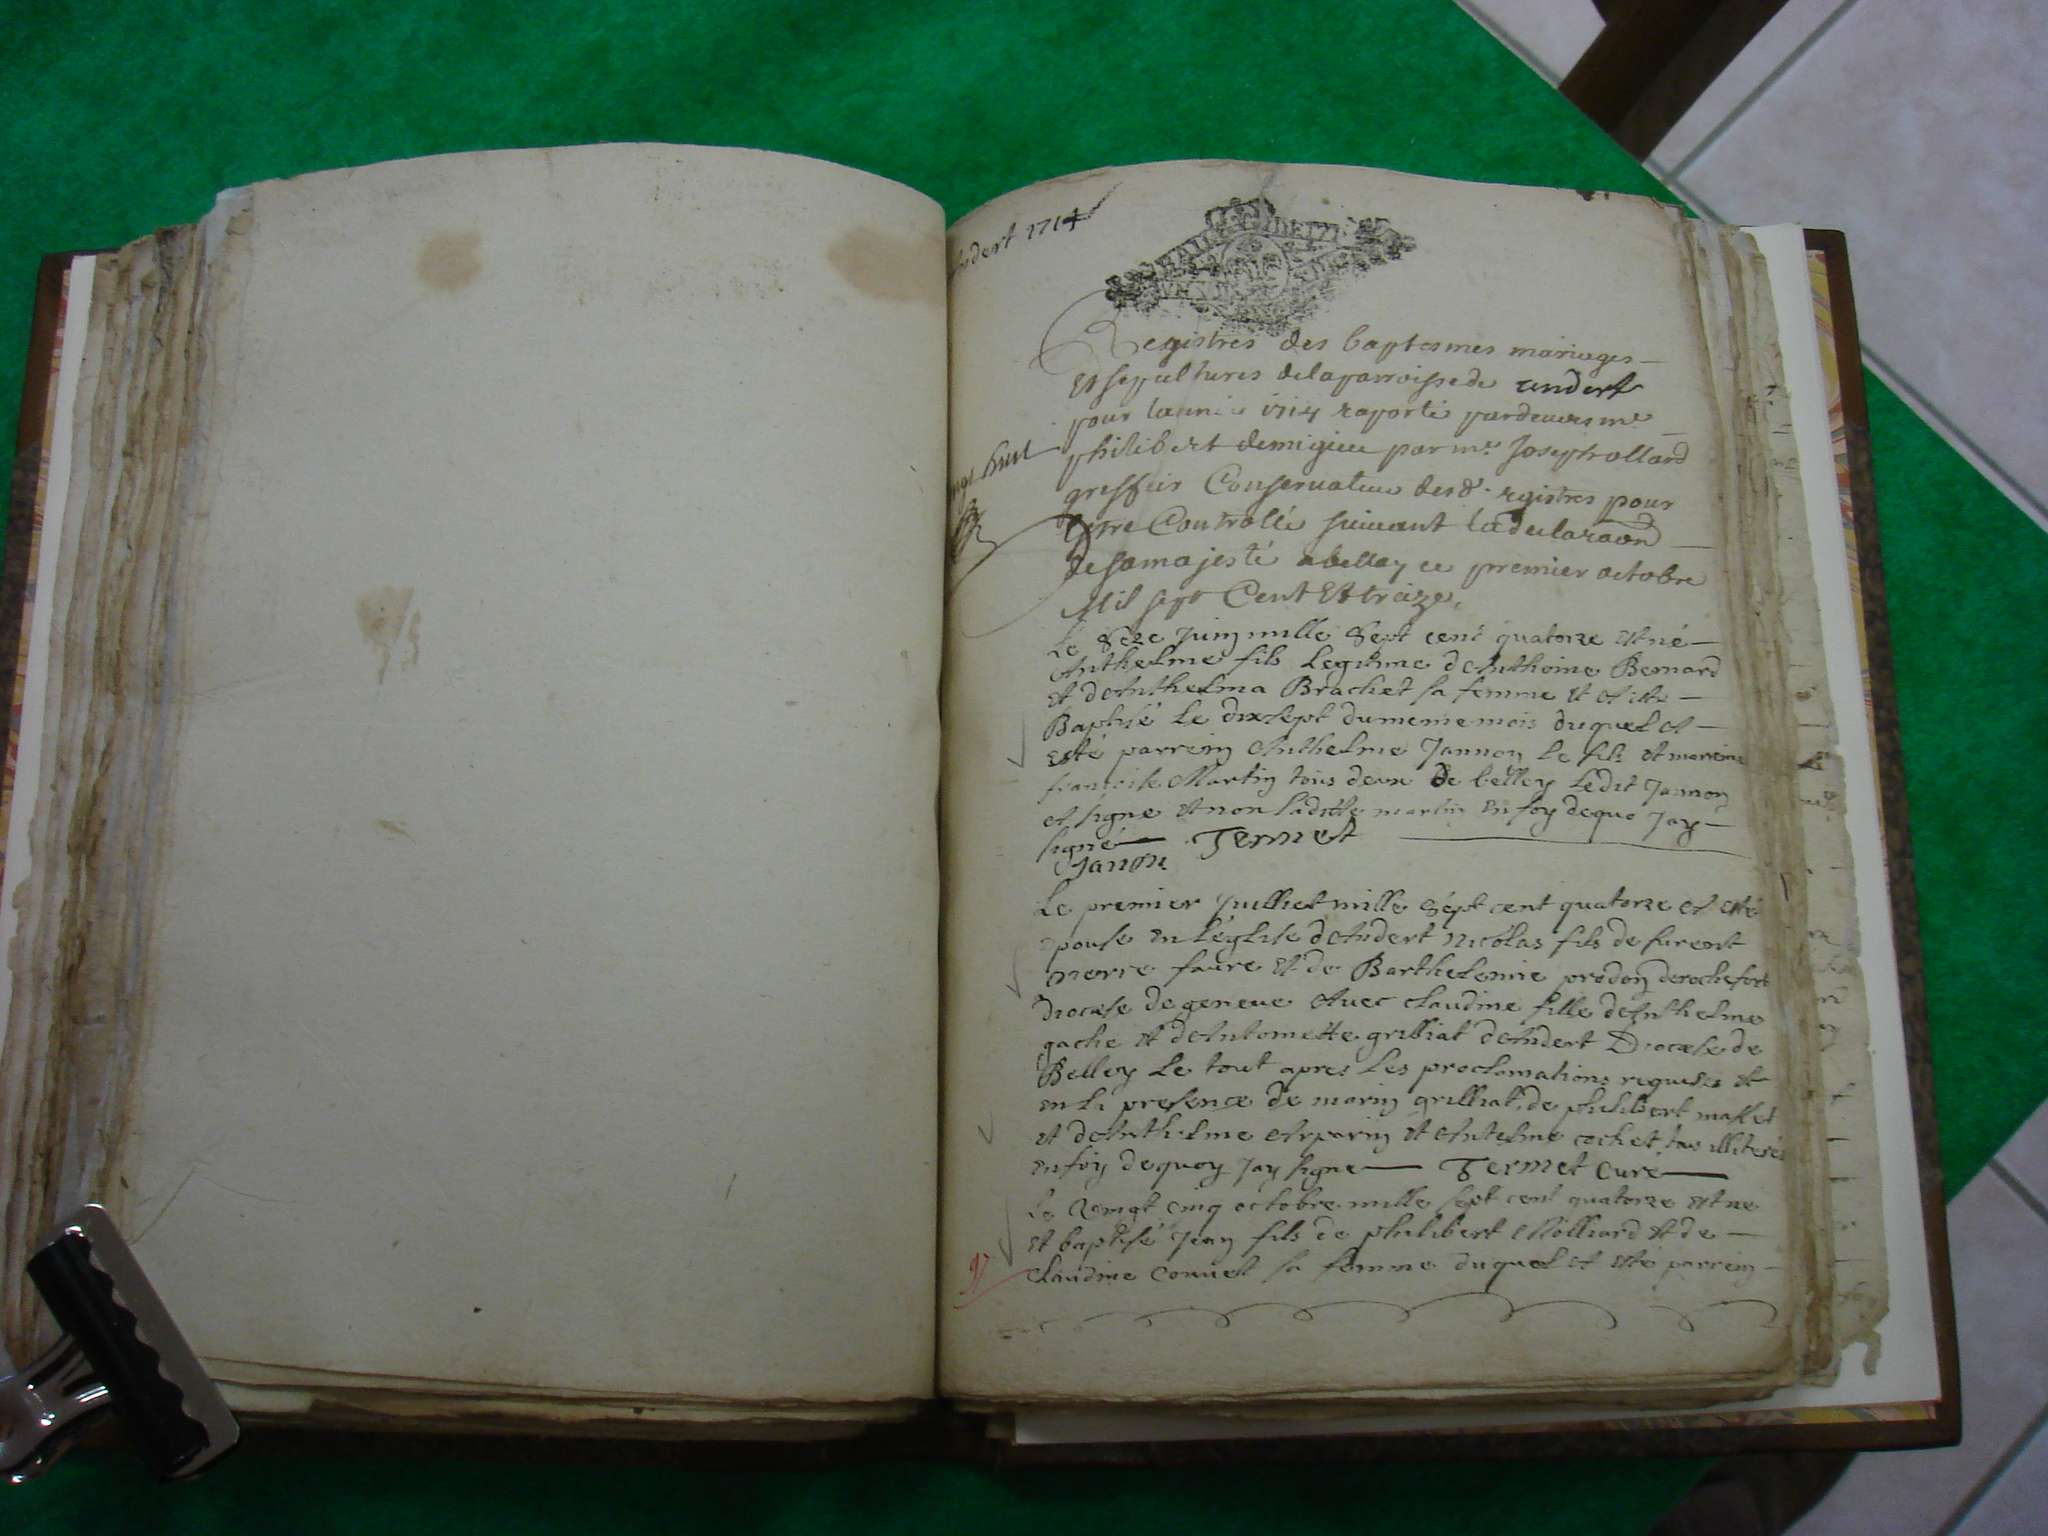 Andert 1714
Registres des baptesmes mariages
Et sepultures de la parroisse de andert
pour lannée 1714 raporté pardevers me
philibert demigieu par me Joseph ollard
greffier Conservateur desd. registres pour
Estre Controllé suivant la declaraon
de sa majesté a belley ce premier octobre
Mil sept Cent Et traize,
Le seze Juin mille Sept cent quatorze est né
Anthelme fils Legitime dAnthoine Bernard
et dAnthelma Brachet sa femme et at este
Baptisé Le dixsept du meme mois duquel at
esté parrein Anthelme Jannon Le fils et marreine
francoise Martin tous deux De belley Ledit Jannon
at signe et non laditte martin En foy dequo Jay
signé Termet
Janon
Le premier Juilliet mille Sept cent quatorze at esté
epouse en L'église dAndert nicolas fils de fureont
pierre faure et de Barthelemie prodon de rochefort
Diocese de geneve Avec claudine fille dAnthelme
gache et dAntoinette grilliat dAndert Diocese de
Belley Le tout apres Les proclamations requises et
en la presence de marin grilliat, de philibert mallet
et dAnthelme Arparin et Antelme cochet tous illiteres
en foy dequoy Jay signe Termet Curé
Le Vingt cinq octobre mille sept cent quatorze est ne
et baptisé Jean fils de philibert Molliard et de
claudine Convert sa femme duquel at esté parrein
97